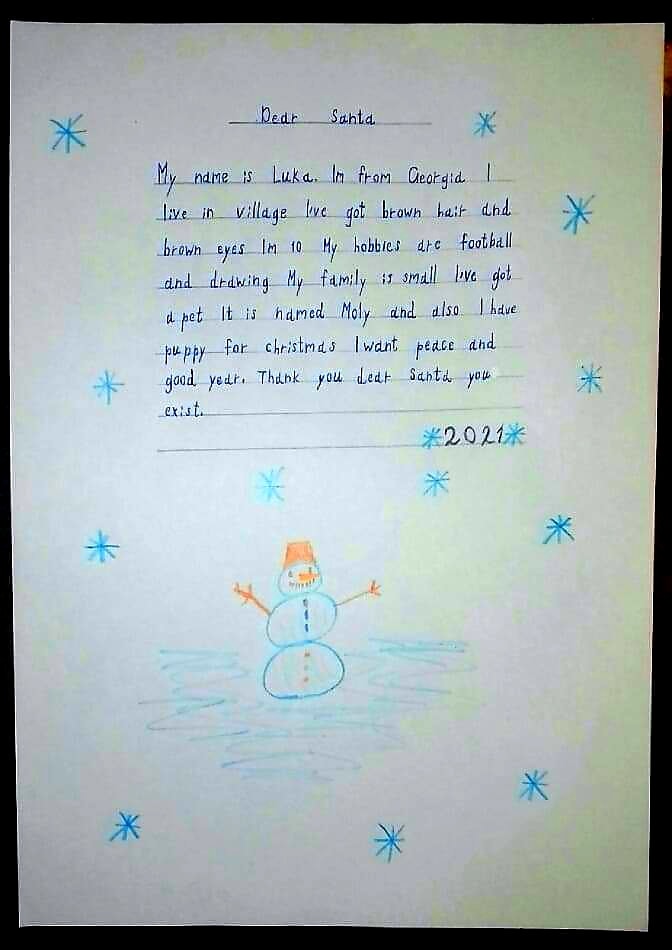 Dear Santa
My name is Luka. Im from Georgia I
live in village Ive got brown hair and
brown eyes Im 10 My hobbies are football
and drawing My family is small Ive got
a pet It is named Moly and also I have
puppy for christmas I want peace and
good year. Thank you dear Santa you
exist.
2021